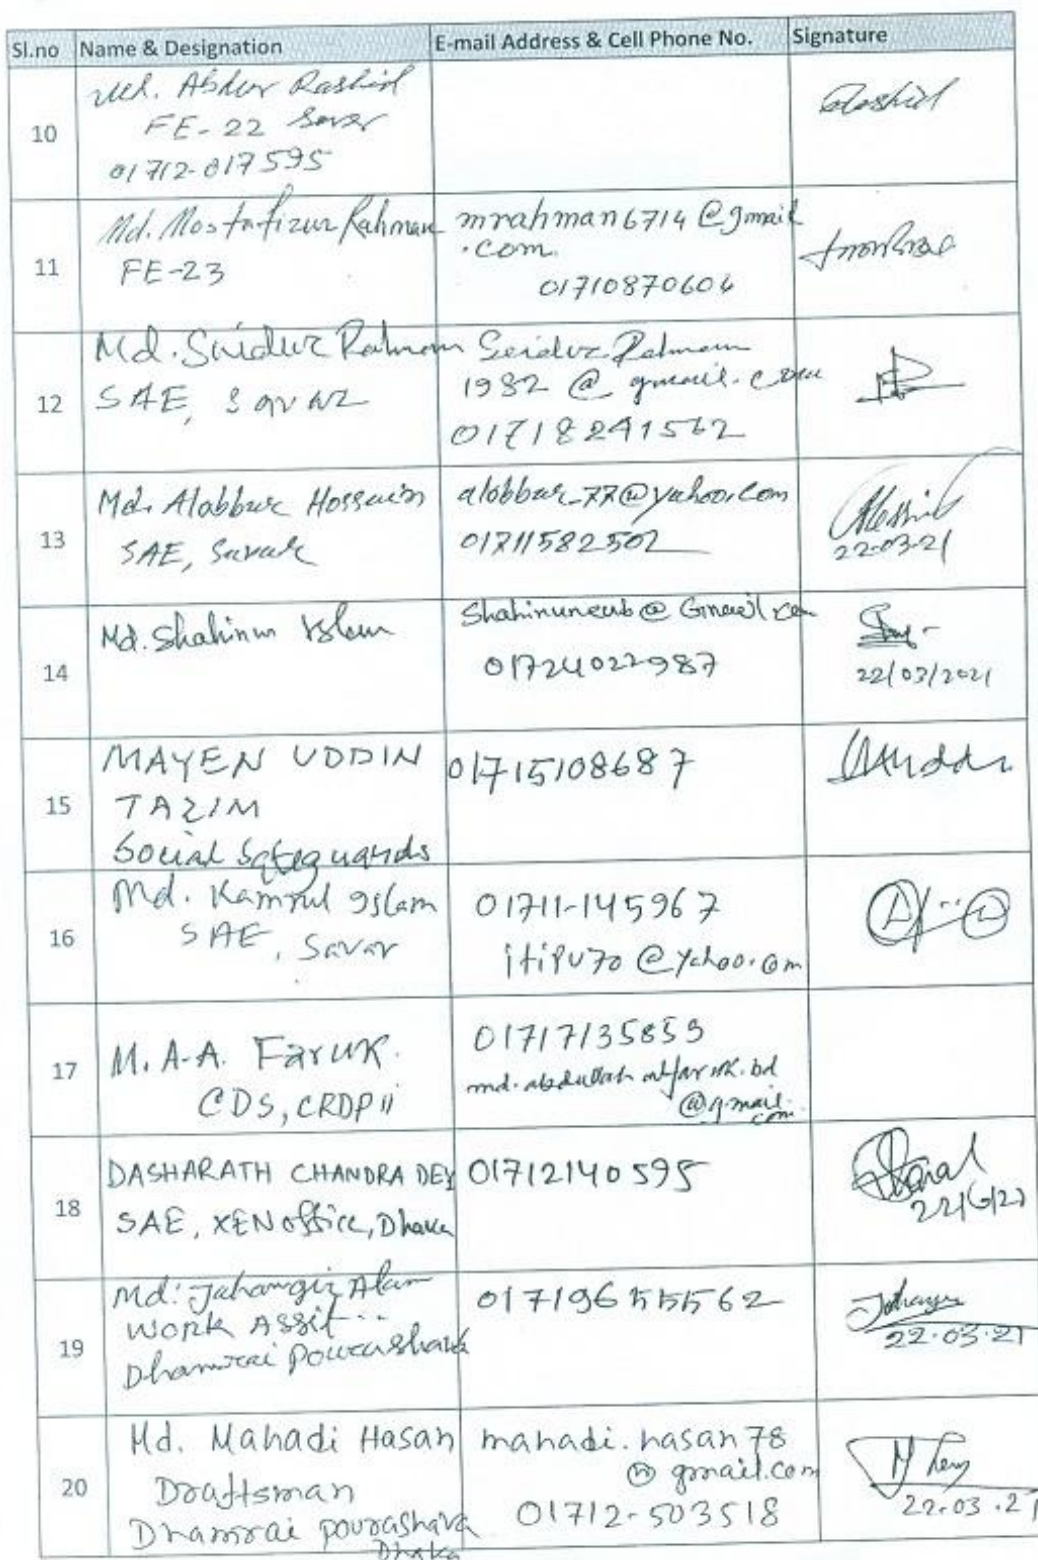 Sl.no Name & Designation E-mail Address & Cell Phone No. Signature
10
Md. Abdur Rashid
FE-22 Savar
01712-017595
Rashid
11
Md. Mostafizur Rahman
FE-23
mrahman6714@gmail
.com
01710870604
12
Md. Saidur Rahman
SAE, Savar
Saidur Rahman
1982 @ gmail.com
01718241562
13
Md. Alabbur Hossain
SAE, Savar
alabbur_77@yahoo.com
01711582502
22-03-21
14
Md. Shahinur Islam
Shahinuneub@Gmail.com
01724022987
22/03/2021
15
MAYEN UDDIN
TAZIM
Social Safeguards
01715108687
16
Md. Kamrul Islam
SAE, Savar
01711-145967
itipu70@yahoo.com
17
M. A-A. Faruk.
CDS, CRDP ii
01717135859
md.abdullah alfaruk.bd
@gmail.
com
18
DASHARATH CHANDRA DEY
SAE, XEN office, Dhaka
01712140595
19
Md: Jahangir Alam
Work Assit..
Dhamrai Pourashava
01719655562
Jahangir
22.03.21
20
Md. Mahadi Hasan
Draftsman
Dhamrai pourashava
Dhaka
mahadi.hasan78
@ gmail.com
01712-503518
22.03.21